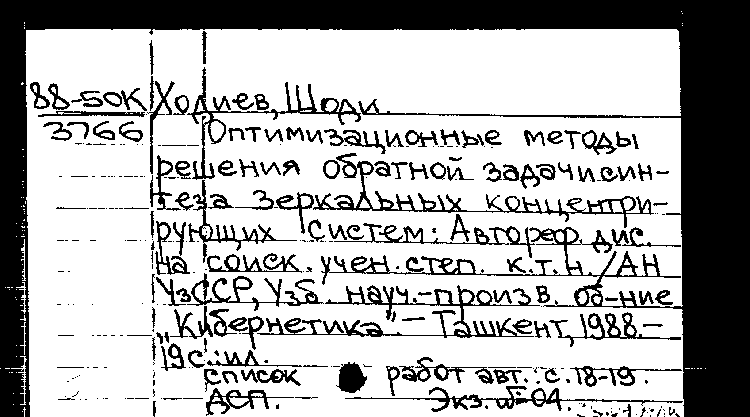 88-50К Ходиев, Шоди.
3766 Оптимизационные методы
решения обратной задачи син-
теза зеркальных концентри-
рующих систем: Автореф. дис.
на соиск. учен. степ. к.т.н. / АН
УзССР, Узб. науч.-произв. об-ние
„Кибернетика“. — Ташкент, 1988. —
19 с.: ил.
список работ авт.: с. 18-19.
ДСП. Экз. № 04.